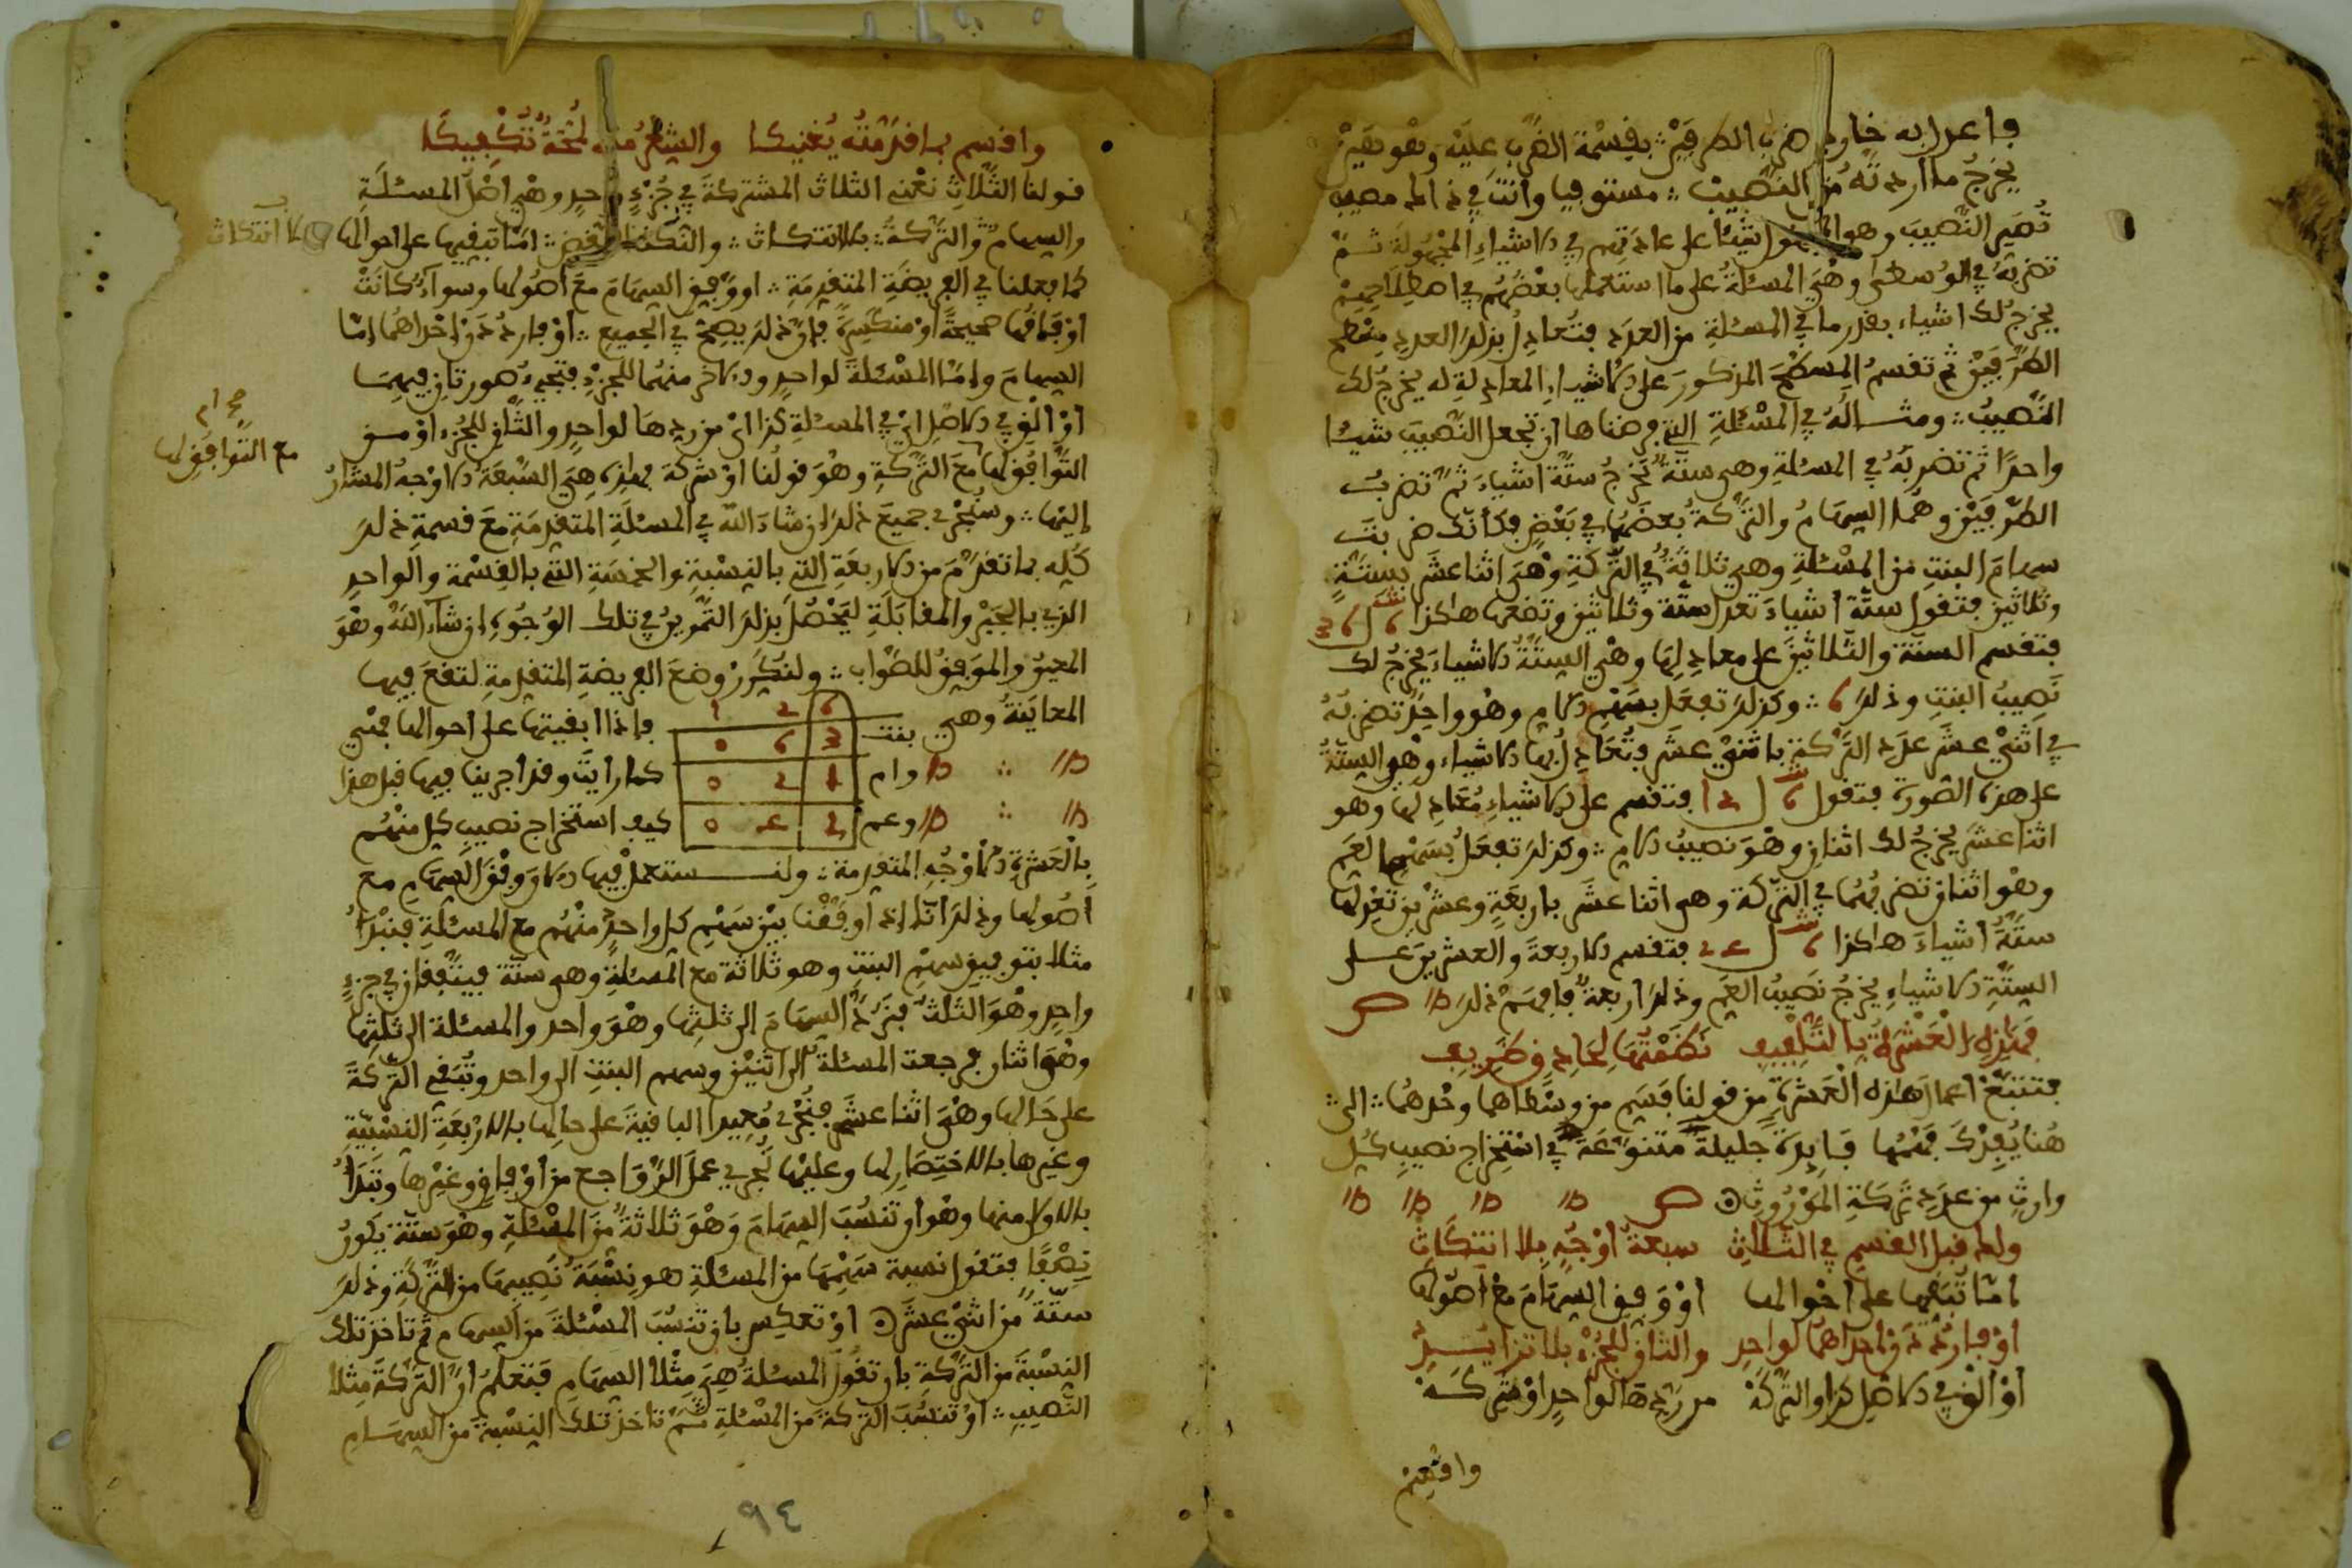 فاعدل به خارج ضرب الطرفين :: بقسمة الضرب عليه وهو هين
يخرج ما أردته من النصيب :: مستوفيا وأنت في ذاك مصيب
تصير النصيب وهو المجهول شيئا على عادتهم في الاشياء المجهولة ثم
تضربه في الوسطى وهي المسئلة على ما استعملها بعضهم في اصطلاحهم
يخرج لك اشياء بقدر ما في المسئلة من العدد فتعادل بذلك العدد مسطح
الطرفين ثم تقسم المسطح المذكور على الاشياء المعادلة له يخرج لك
النصيب :: ومثاله في المسئلة التي فرضناها ان تجعل النصيب شيئا
واحدا ثم تضربه في المسئلة وهي ستة تخرج ستة اشياء ثم تضرب
الطرفين وهما السهام والتركة بعضها في بعض فكأنك ضربت
سهام البنت من المسئلة وهي ثلاثة في التركة وهي اثنا عشر بستة
وثلاثين فتقول ستة أشياء تعدل ستة وثلاثين وتضعها هاكذا 6 ل 36
فتقسم الستة والثلاثين على معادلها وهي الستة الاشياء يخرج لك
نصيب البنت وذلك 6 :: وكذلك تفعل بسهم الام وهو واحد تضربه
في اثني عشر عدد التركة باثني عشر فتعادل بها الاشياء وهو الستة
على هذه الصورة فتقول 6 ل 12 فتقسم على الاشياء معادلها وهو
اثنا عشر يخرج لك اثنان وهو نصيب الام :: وكذلك تفعل بسهم العم
وهو اثنان تضربهما في التركة وهي اثنا عشر باربعة وعشرين تعدلها
ستة أشياء هاكذا 6 ل 24 فتقسم الاربعة والعشرين على
الستة الاشياء يخرج نصيب العم وذلك اربعة فافهم ذلك
فهذه العشرة بالتلفيف نظمتها لحاذق ظريف
فتتبع اعمال هاذه العشرة من قولنا فسم من وسطاهما وخدهما :: الى ::
هنا يفدك فهمها فايدة جليلة متنوعة في استخراج نصيب كل
وارث من عدد تركة الموروث
ولها قبل القسم في الثلاث سبعة أوجه بلا انتكاث
اما تبقها على أحوالها أو وفق السهام مع أصولها
أو فاردد ن احداهما لواحد والثان للجزء بلا تزايد
أو ألف في الاصل كذا والتركة من ردها لواحد او شركة
واقسم
واقسم بما قدمته يغنيكا والشعر منه لمحة تكفيكا
قولنا الثلاث نعني الثلاث المشتركة في جزء واحد وهي أصل المسئلة
والسهام والتركة :: بلا انتكاث :: والنكث النقض :: اما تبقيها على احوالها
بلا انتكاث
كما فعلنا في الفريضة المتقدمة :: او وفق السهام مع أصولها وسواء كانت
أوفاقها صحيحة أو منكسرة فان ذلك يصح في الجميع :: أو فاردد ن احداهما إما
السهام وإما المسئلة لواحد والاخر منهما للجزء فتجيء صورتان فيهما
أو ألف في الاصل اي في المسئلة كذا اي من ردها لواحد والثاني للجزء أو من
التوافق لها مع التركة وهو قولنا أو شركة فهذه هي السبعة الاوجه المشار
صح ام
مع التوافق لها
إليها :: وسنجري جميع ذلك إن شاء الله في المسئلة المتقدمة مع قسمة ذلك
كله بما تقدم من الاربعة التي بالنسبة والخمسة التي بالقسمة والواحد
الذي بالجبر والمقابلة ليحصل بذلك التمرين في تلك الوجوه إن شاء الله وهو
المعين والموفق للصواب :: ولنكرر وضع الفريضة المتقدمة لتقع فيها
المعاينة وهي
6 2 1
بنت 3 6 0
وام 1 2 0
وعم 2 4 0
فاذا ابقيتها على احوالها فهي
كما رايت وقد اجرينا فيها قبل هذا
كيف استخراج نصيب كل منهم
بالعشرة الاوجه المتقدمة :: ولنستعمل فيها الان وفق السهام مع
أصولها وذلك انا إذا وفقنا بين سهم كل واحد منهم مع المسئلة فنبدأ
مثلا بتوفيق سهم البنت وهو ثلاثة مع المسئلة وهي ستة فيتفقان في جزء
واحد وهو الثلث فنرد السهام الى ثلثها وهو واحد والمسئلة الى ثلثها
وهو اثنان فرجعت المسئلة الى اثنين وسهم البنت الى واحد وتبقى التركة
على حالها وهي اثنا عشر فتجري فيها الباقية على حالها بالاربعة النسبية
وغيرها بالاختصار لها وعليها تجري عمل الرواجع من أوفاق وغيرها وتبدأ
بالاولى منها وهو ان تنسب السهام وهو ثلاثة من المسئلة وهو ستة يكون
نصفا فتقول نسبة سهمها من المسئلة هو نسبة نصيبها من التركة وذلك
ستة من اثني عشر او تعكس بان تنسب المسئلة من السهام ثم تاخذ تلك
النسبة من التركة بان تقول المسئلة هي مثلا السهام فتعلم أن التركة مثلا
النصيب :: او تنسب التركة من المسئلة ثم تاخذ تلك النسبة من السهام
٩٤